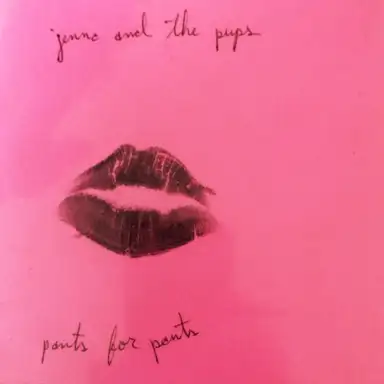 jenna and the pups
pants for pants